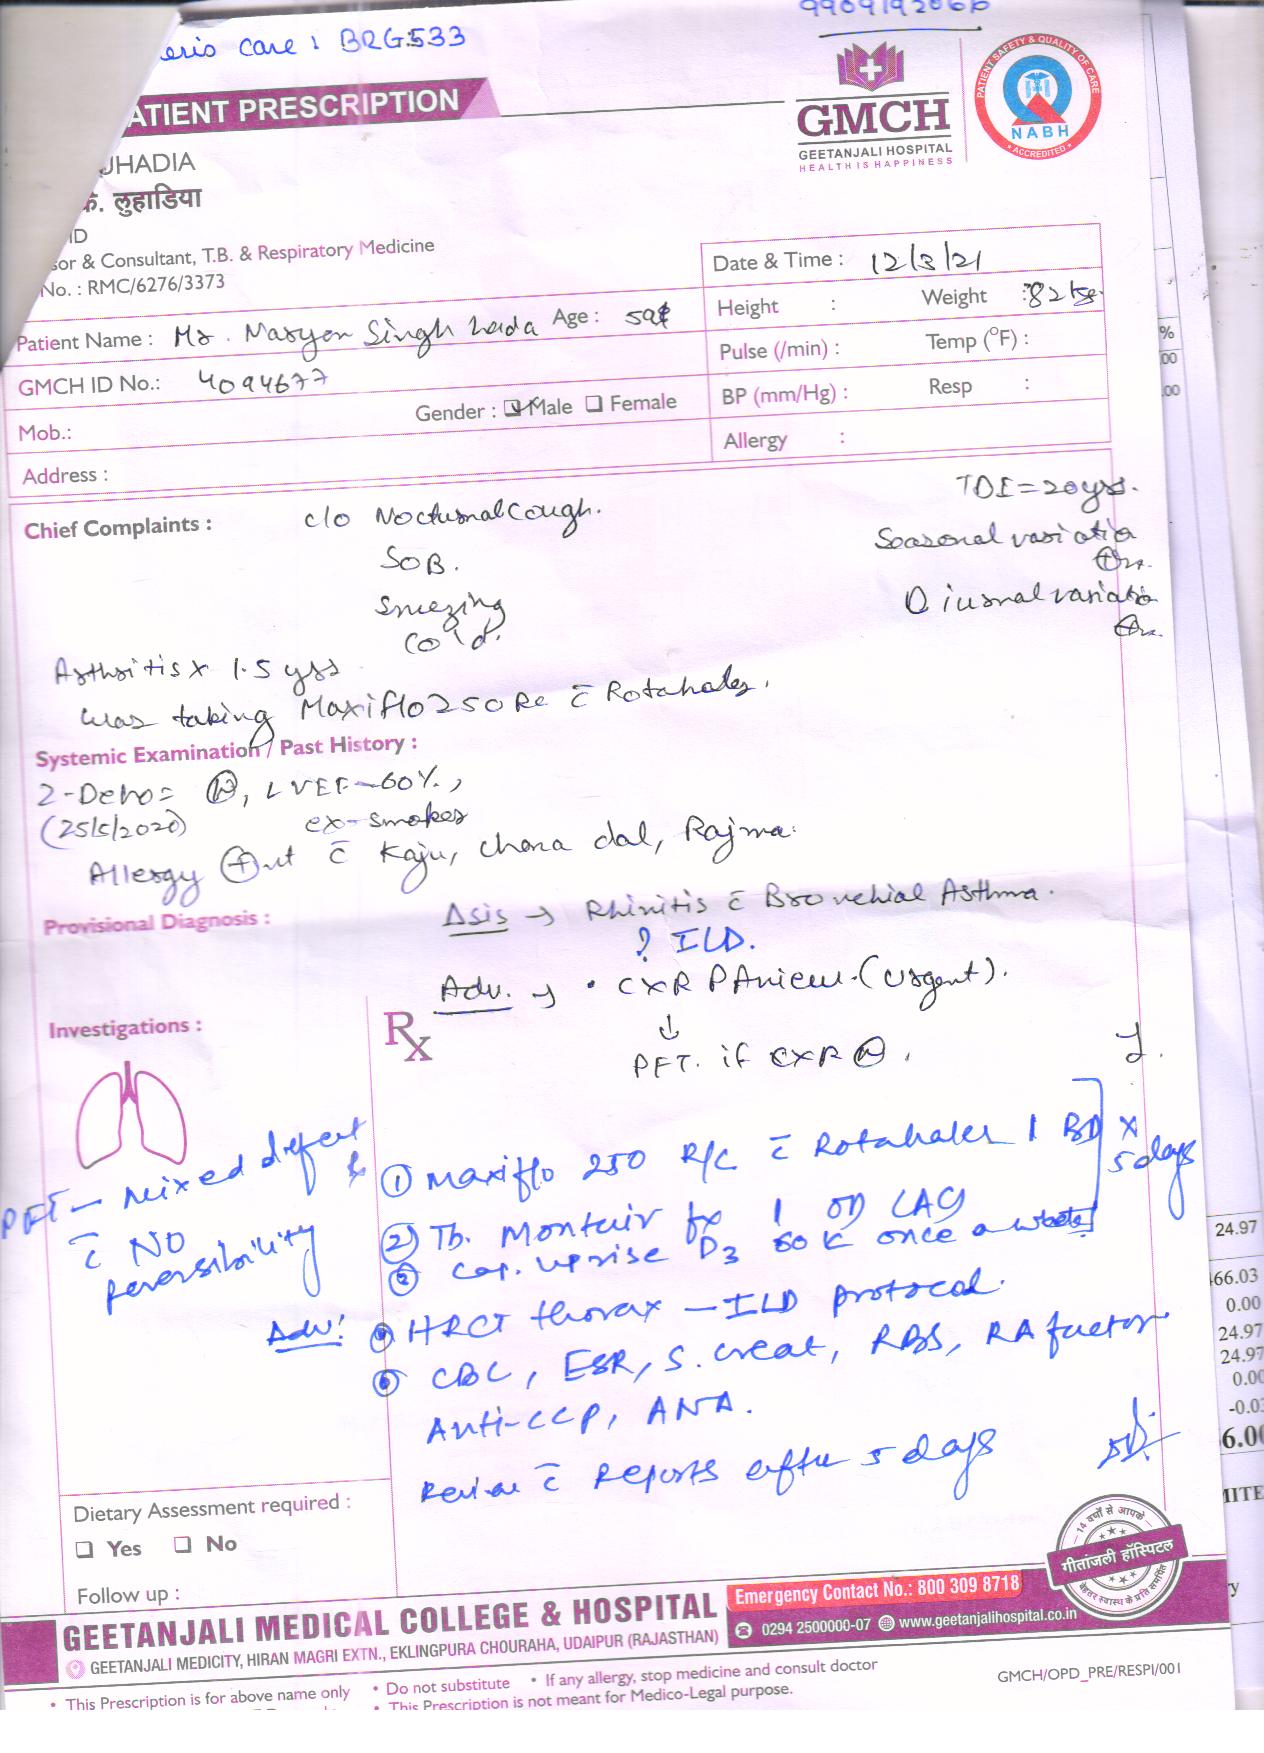 eris care : BRG533
9909192066
ATIENT PRESCRIPTION
GMCH
GEETANJALI HOSPITAL
HEALTH IS HAPPINESS
PATIENT SAFETY & QUALITY OF CARE
NABH
ACCREDITED
UHADIA
के. लुहाडिया
sor & Consultant, T.B. & Respiratory Medicine
No. : RMC/6276/3373
Date & Time : 12/3/21
Height : Weight : 82 kg
Patient Name : Mr. Singh Age : 59
Pulse (/min) : Temp (°F) :
GMCH ID No.: 4094677
Gender : Male Female
BP (mm/Hg) : Resp :
Mob.:
Allergy :
Address :
Chief Complaints : c/o Nocturnal Cough.
SOB.
Sneezing
Cold.
TDI = 20 yrs.
Seasonal variatio
Diurnal variatio
Arthritis x 1.5 yrs
was taking Maxiflo 250 Rc c̄ Rotahaler.
Systemic Examination / Past History :
2-Decho = N, LVEF - 60%,
(25/5/2020) ex-smoker
Allergy ⊕nt c̄ Kaju, chana dal, Rajma.
Provisional Diagnosis :
Δsis → Rhinitis c̄ Bronchial Asthma.
? ILD.
Adv. → • CXR PA view (Urgent).
↓
PFT. if CXR N.
Investigations :
Rx
PFT - Mixed defect
c̄ NO
reversibility
① Maxiflo 250 R/C c̄ Rotahaler 1 BD x 5 days
② Tb. Montair fx 1 OD
③ Cap. uprise D3 60K once a week
Adv: ④ HRCT thorax - ILD protocol.
⑤ CBC, ESR, S. creat, RBS, RA factor
Anti-CCP, ANA.
Review c̄ Reports after 5 days
Dietary Assessment required :
Yes No
Follow up :
14 वर्षों से आपके
गीतांजली हॉस्पिटल
बेहतर स्वास्थ के प्रति समर्पित
GEETANJALI MEDICAL COLLEGE & HOSPITAL
GEETANJALI MEDICITY, HIRAN MAGRI EXTN., EKLINGPURA CHOURAHA, UDAIPUR (RAJASTHAN)
Emergency Contact No.: 800 309 8718
0294 2500000-07 www.geetanjalihospital.co.in
• This Prescription is for above name only • Do not substitute • If any allergy, stop medicine and consult doctor
• This Prescription is not meant for Medico-Legal purpose.
GMCH/OPD_PRE/RESPI/001
%
00
.00
24.97
466.03
0.00
24.97
24.97
0.00
-0.03
6.00
MITE